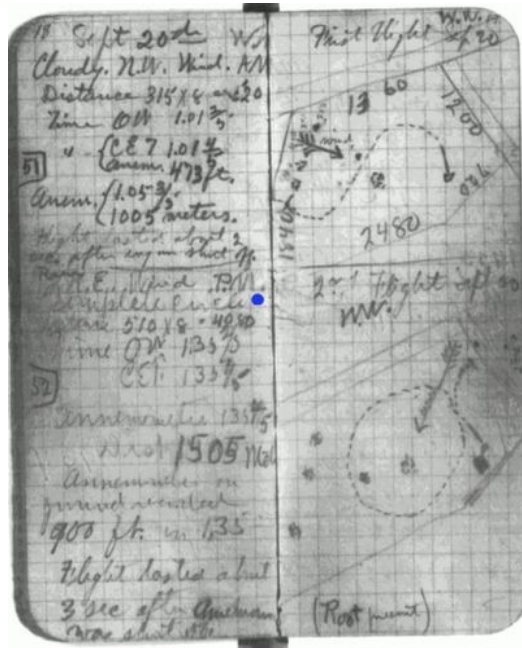 18 Sept 20th
Cloudy. N.W. Wind. AM
Distance 315 x 8 = 2520
Time OW 1.01 3/5
51
" { C E T 1.01 4/5
anem. 473 ft.
Anem. { 1.05 3/5
1005 meters.
Flight lasted about 2
sec. after engine shut off.
Wind P.M.
Complete Circle
510 x 8 = 4080
Time OW 1.35 /5
52
CET. 135 /5
Annemometer 135 /5
Dist 1505 Met
Annemometer on
ground recorded
900 ft. in 1.35
Flight lasted about
3 sec after
was shut off
First Flight
Sept 20
W.W.
13 60
1200
wind
780
2480
2nd Flight Sept 20
W.W.
(Root present)